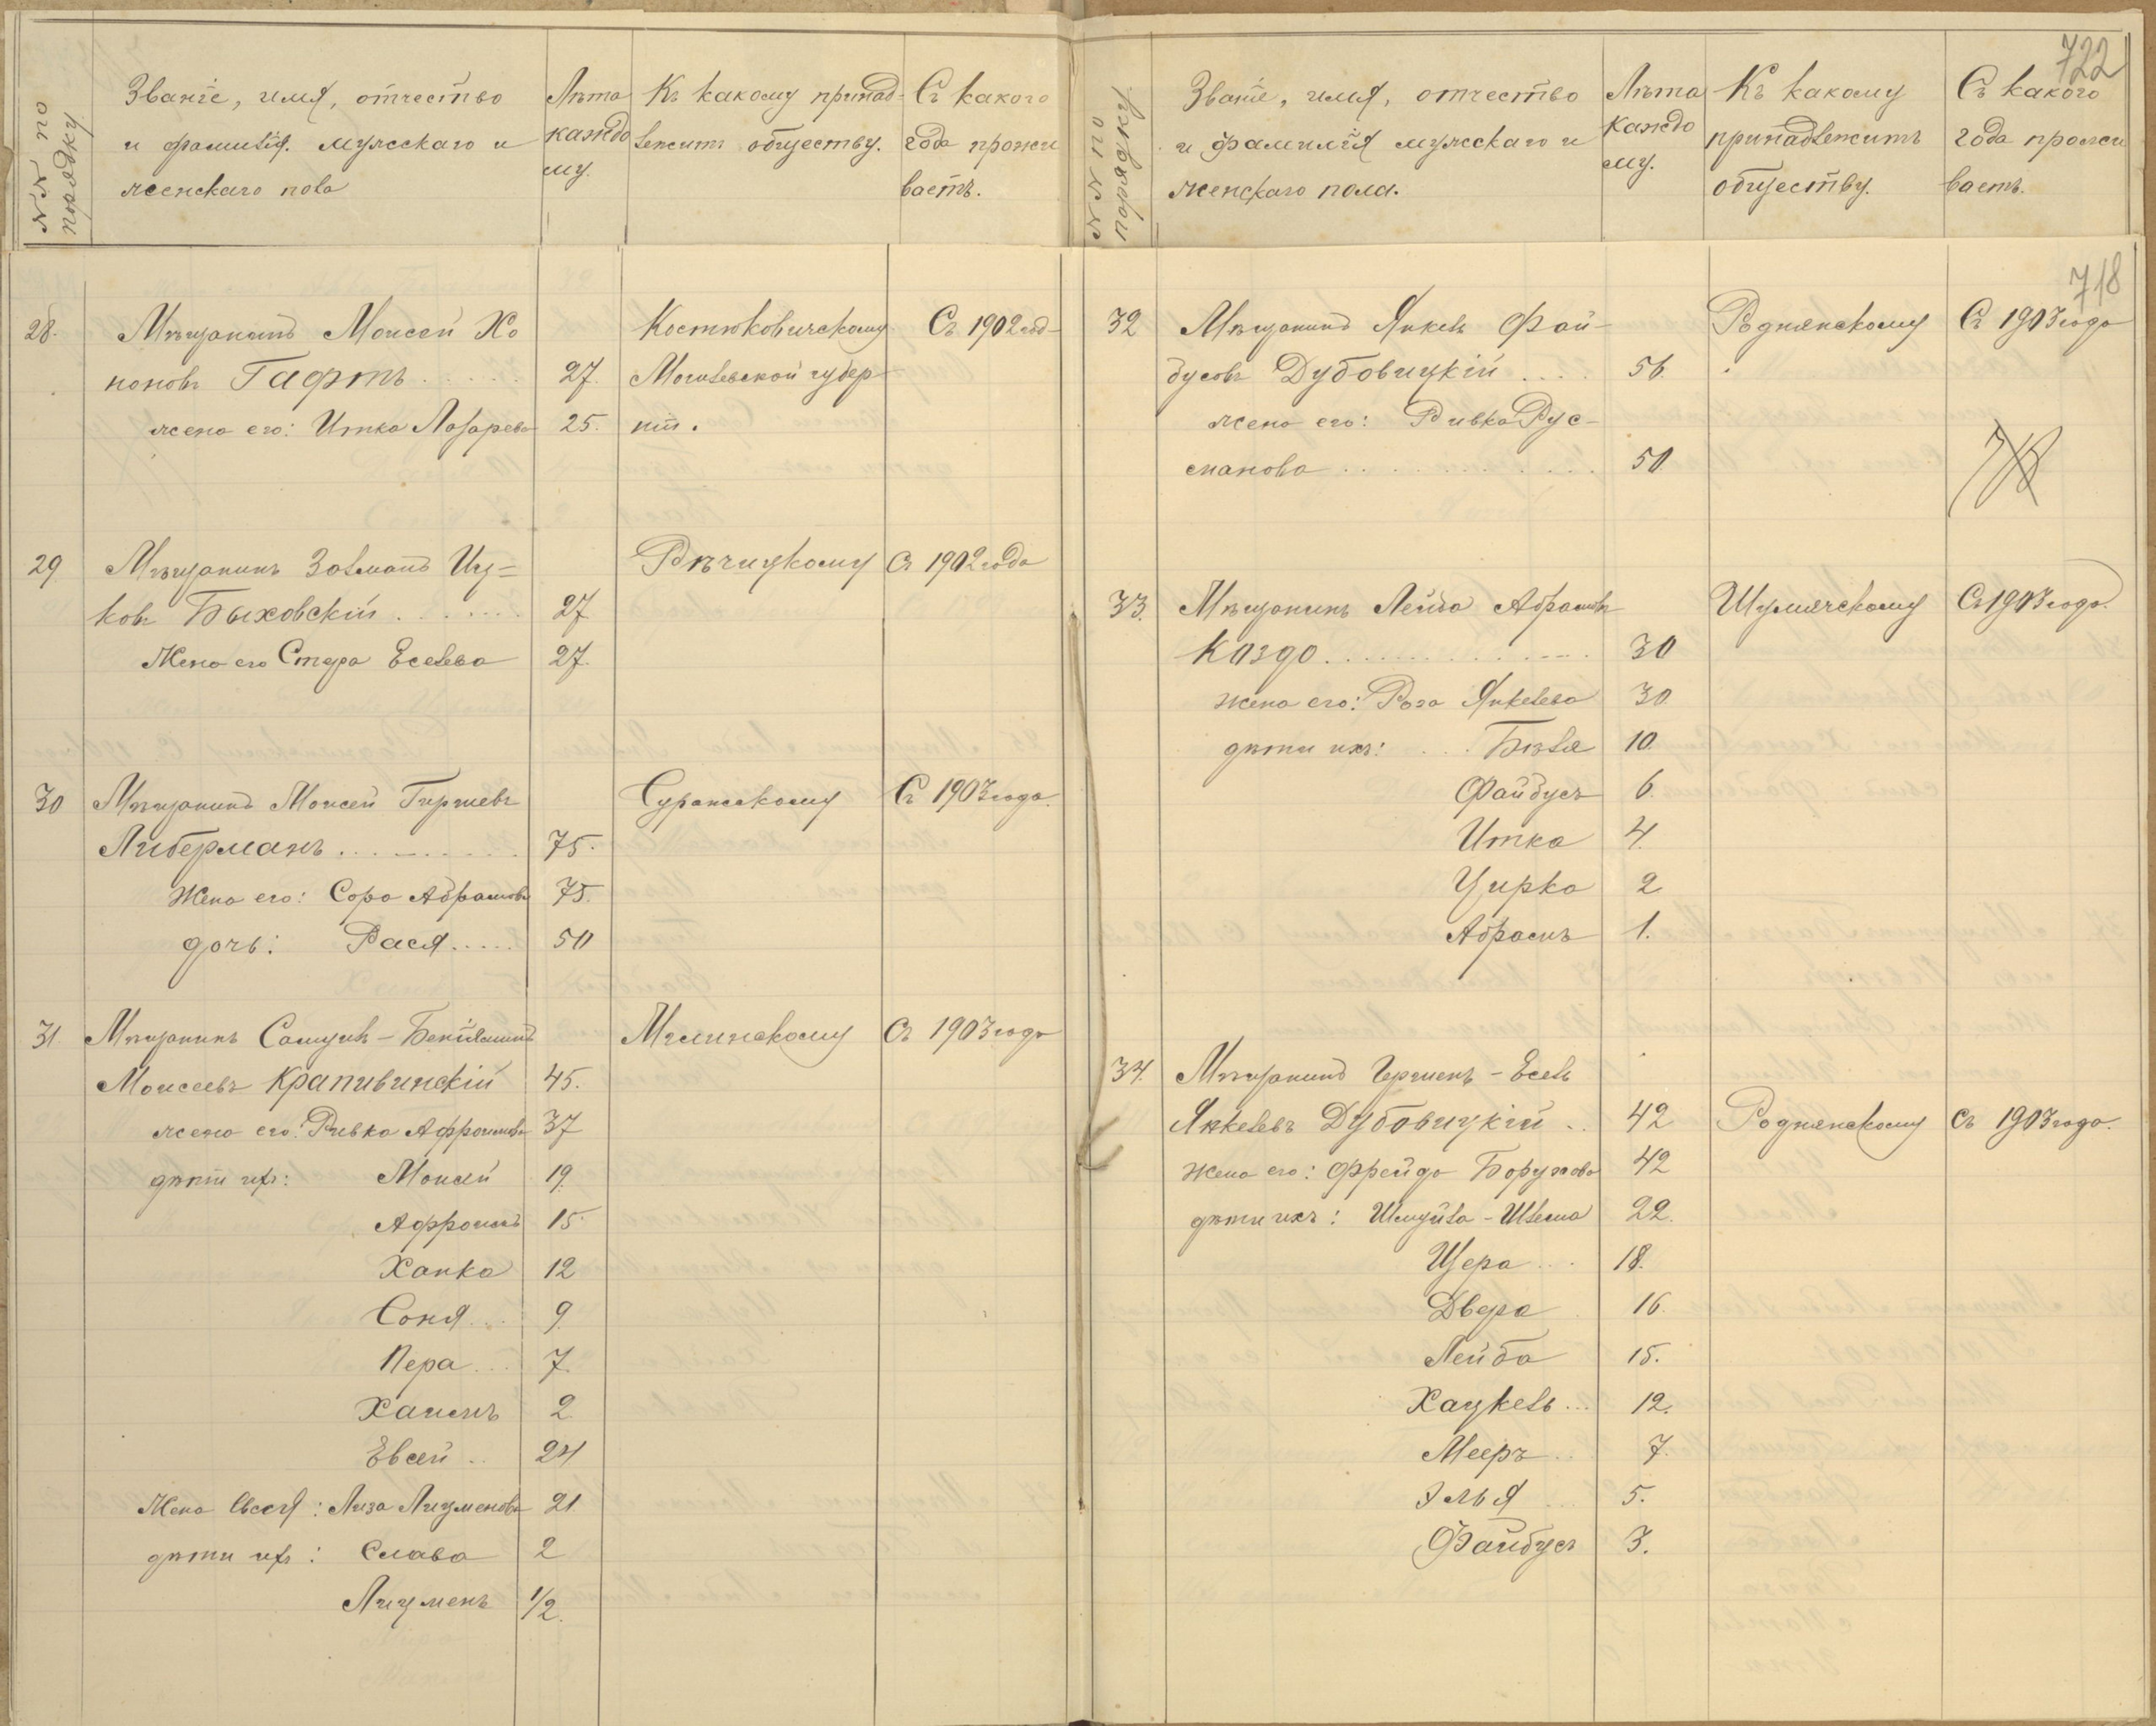 №№ по порядку
Званіе, имя, отчество и фамилія мужскаго и женскаго пола
Лѣта каждо му.
Къ какому принад- лежитъ обществу.
Съ какого года прожи ваетъ.
28. Мѣщанинъ Моисей Хо Костюковичскому Съ 1902 год
ноновъ Гафтъ . . . . . 27. Могилевской губер
жена его: Итка Лазарева 25. ніи.
29 Мѣщанинъ Залманъ Иц= Рѣчицкому Съ 1902 года
ковъ Быховскій . . . . . . 27
Жена его Стера Еселева 27.
30 Мѣщанинъ Моисей Гиршевъ Суражскому Съ 1903 года.
Либерманъ . . . . . . . . . 75.
Жена его: Сора Абрамова 75.
дочь: Рася . . . . . 50
31. Мѣщанинъ Самуилъ-Беніяминъ Мглинскому Съ 1903 года
Моисеевъ Крапивинскій 45.
жена его: Ривка Афроимова 37
дѣти ихъ: Моисей 19.
Афроимъ 15.
Ханка 12
Соня . . . 9.
Пера . . . 7.
Хаимъ 2
Евсей . . 24
Жена Евсея: Лиза Лицменова 21
дѣти ихъ: Слава 2
Лицменъ 1/2.
722
№№ по порядку
Званіе, имя, отчество и фамилія мужскаго и женскаго пола.
Лѣта каждо му.
Къ какому принадлежитъ обществу.
Съ какого года прожи ваетъ.
718
32 Мѣщанинъ Янкель Фай- Роднянскому Съ 1903 года
бусовъ Дубовицкій . . . . 56.
жена его: Ривка Рус-
манова . . . . . . . . . . 50
33. Мѣщанинъ Лейба Абрамовъ Шумячскому Съ 1903 года.
Каздо . . . . . . . . . . . 30
жена его: Роза Янкелева 30.
дѣти ихъ: . . . Бэля 10.
Файбусъ 6.
Итка 4.
Цирка 2
Абрамъ 1.
34. Мѣщанинъ Гершенъ-Есель
Янкелевъ Дубовицкій . . 42 Роднянскому Съ 1903 года.
Жена его: Фрейда Борухова 42
дѣти ихъ: Шмуйла-Шлема 22.
Щера . . . 18.
Двера 16.
Лейба 15.
Хацкель . . . 12.
Мееръ . . 7.
Элья . . . 5.
Файбусъ 3.